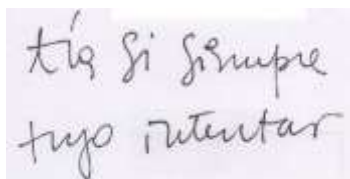 tía si siempre
tuyo intentar